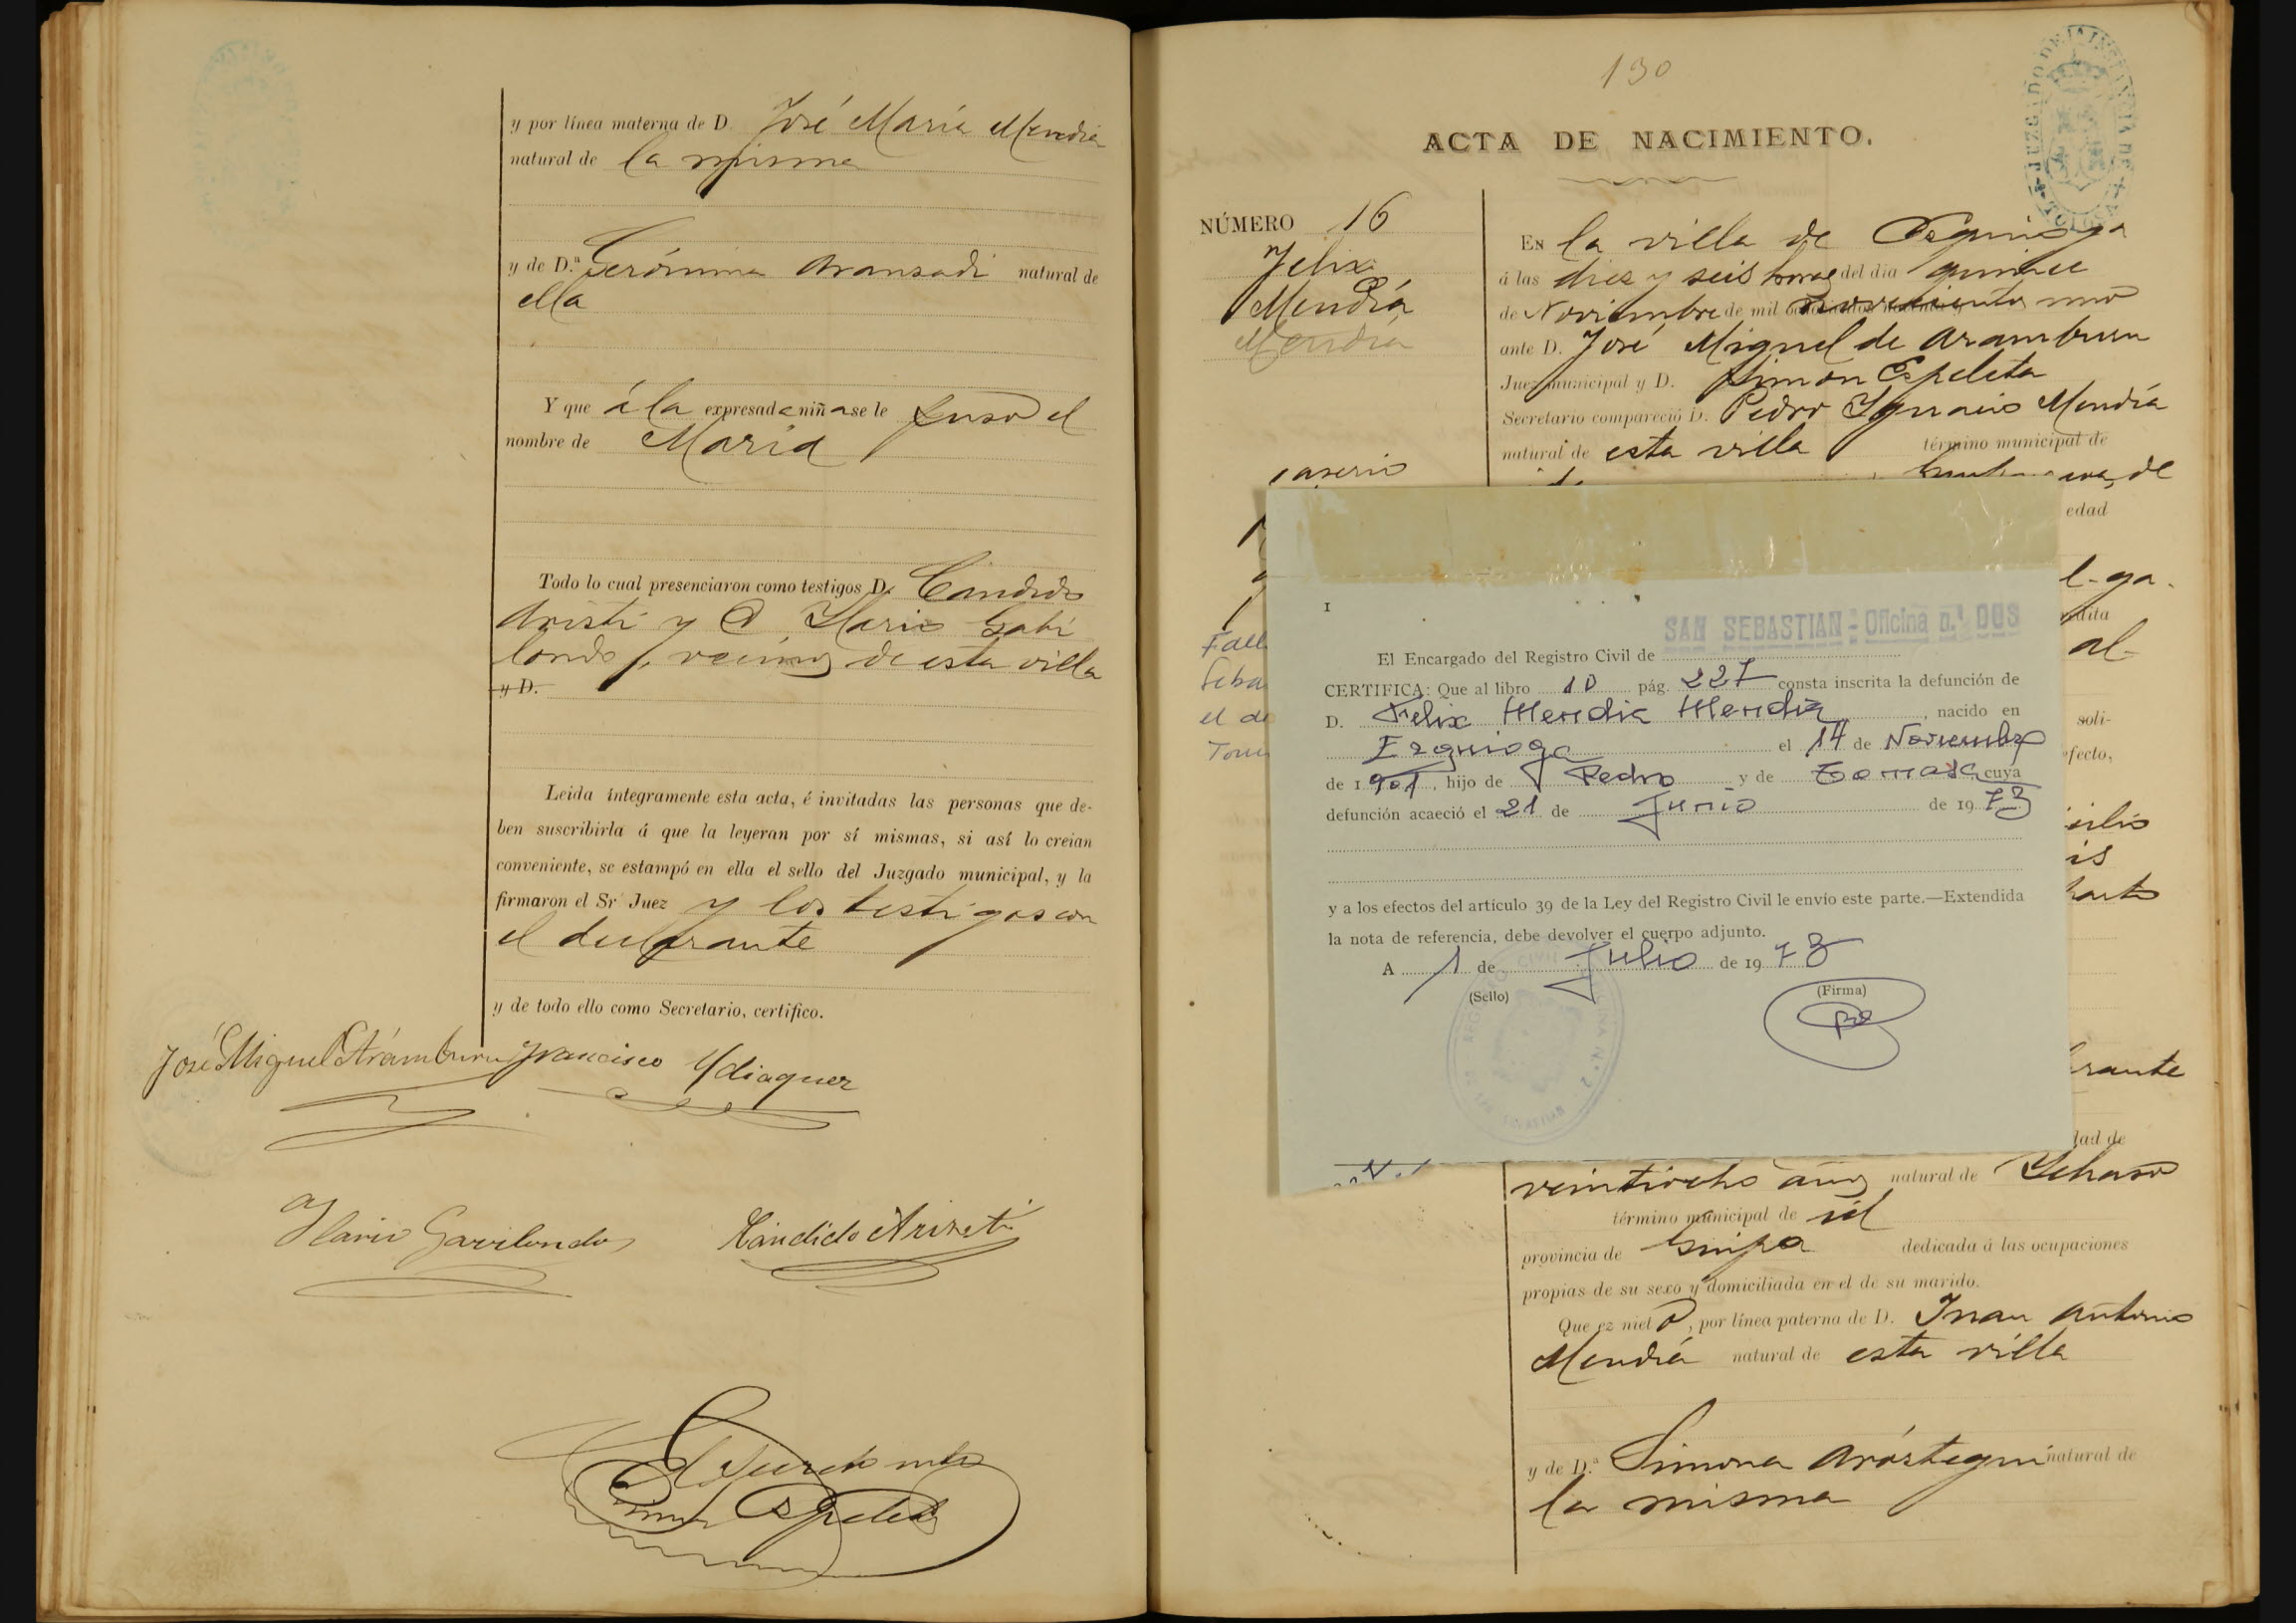 y por línea materna de D. José María Mendia
natural de la misma
y de D.ª Gerónima Aransadi natural de
ella
Y que á la expresada niña se le puso el
nombre de María
Todo lo cual presenciaron como testigos D. Candido
Aristi y D. Ylario Gabi
londo, vecinos de esta villa
y D.
Leida íntegramente esta acta, é invitadas las personas que de-
ben suscribirla á que la leyeran por sí mismas, si así lo creian
conveniente, se estampó en ella el sello del Juzgado municipal, y la
firmaron el Sr Juez y los testigos con
el declarante
y de todo ello como Secretario, certifico.
José Miguel Arámburu Francisco Ydiaquez
Ylario Gavilondo Candido Aristi
Espeleta
130
ACTA DE NACIMIENTO.
NÚMERO 16
Felix
Mendía
Mendía
caserio
Fall
Seba
el de
Tom
JUZGADO DE 1ª INSTANCIA DE TOLOSA
En la villa de Ezquioga
á las diez y seis horas del dia quince
de Noviembre de mil novecientos uno
ante D. José Miguel de Aramburu
Juez municipal y D. Simon Espeleta
Secretario compareció D. Pedro Ygnacio Mendía
natural de esta villa término municipal de
de
edad
al-
soli-
efecto,
I
SAN SEBASTIAN - Oficina n.º 003
El Encargado del Registro Civil de
CERTIFICA: Que al libro 10 pág. 227 consta inscrita la defunción de
D. Felix Mendia Mendia, nacido en
Ezquioga el 14 de Noviembre
de 1901, hijo de Pedro y de Tomasa cuya
defunción acaeció el 21 de Junio de 1973
y a los efectos del artículo 39 de la Ley del Registro Civil le envío este parte.—Extendida
la nota de referencia, debe devolver el cuerpo adjunto.
A 1 de Julio de 1973
(Sello) (Firma)
rante
dad de
veintiocho años natural de Ychaso
término municipal de id
provincia de Guipa dedicada á las ocupaciones
propias de su sexo y domiciliada en el de su marido.
Que es nieto, por línea paterna de D. Juan Antonio
Mendía natural de esta villa
y de D.ª Simona Aróstegui natural de
la misma